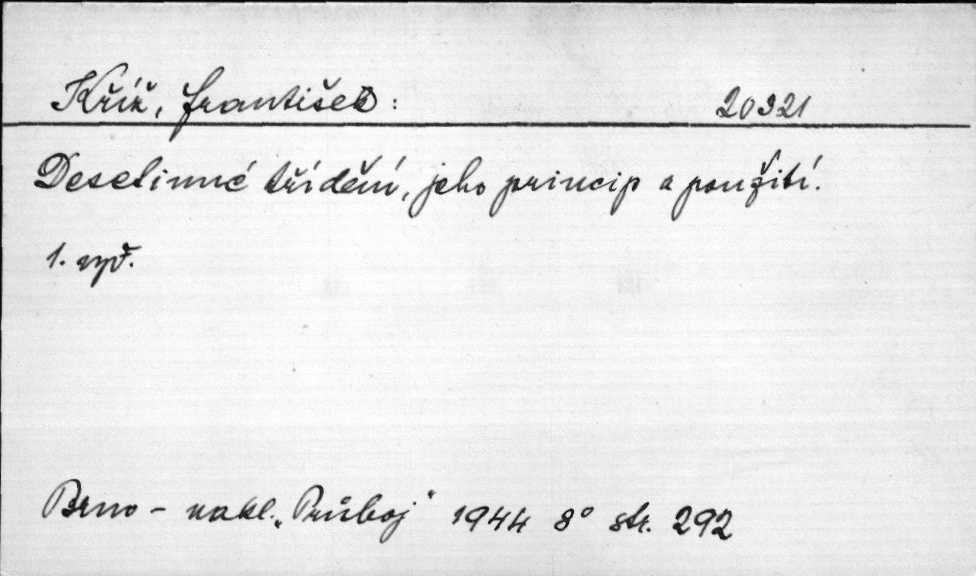 Kříž, František: 20921
Desetinné třídění, jeho princip a použití.
1. vyd.
Brno - nakl. „Průboj" 1944 8° str. 292